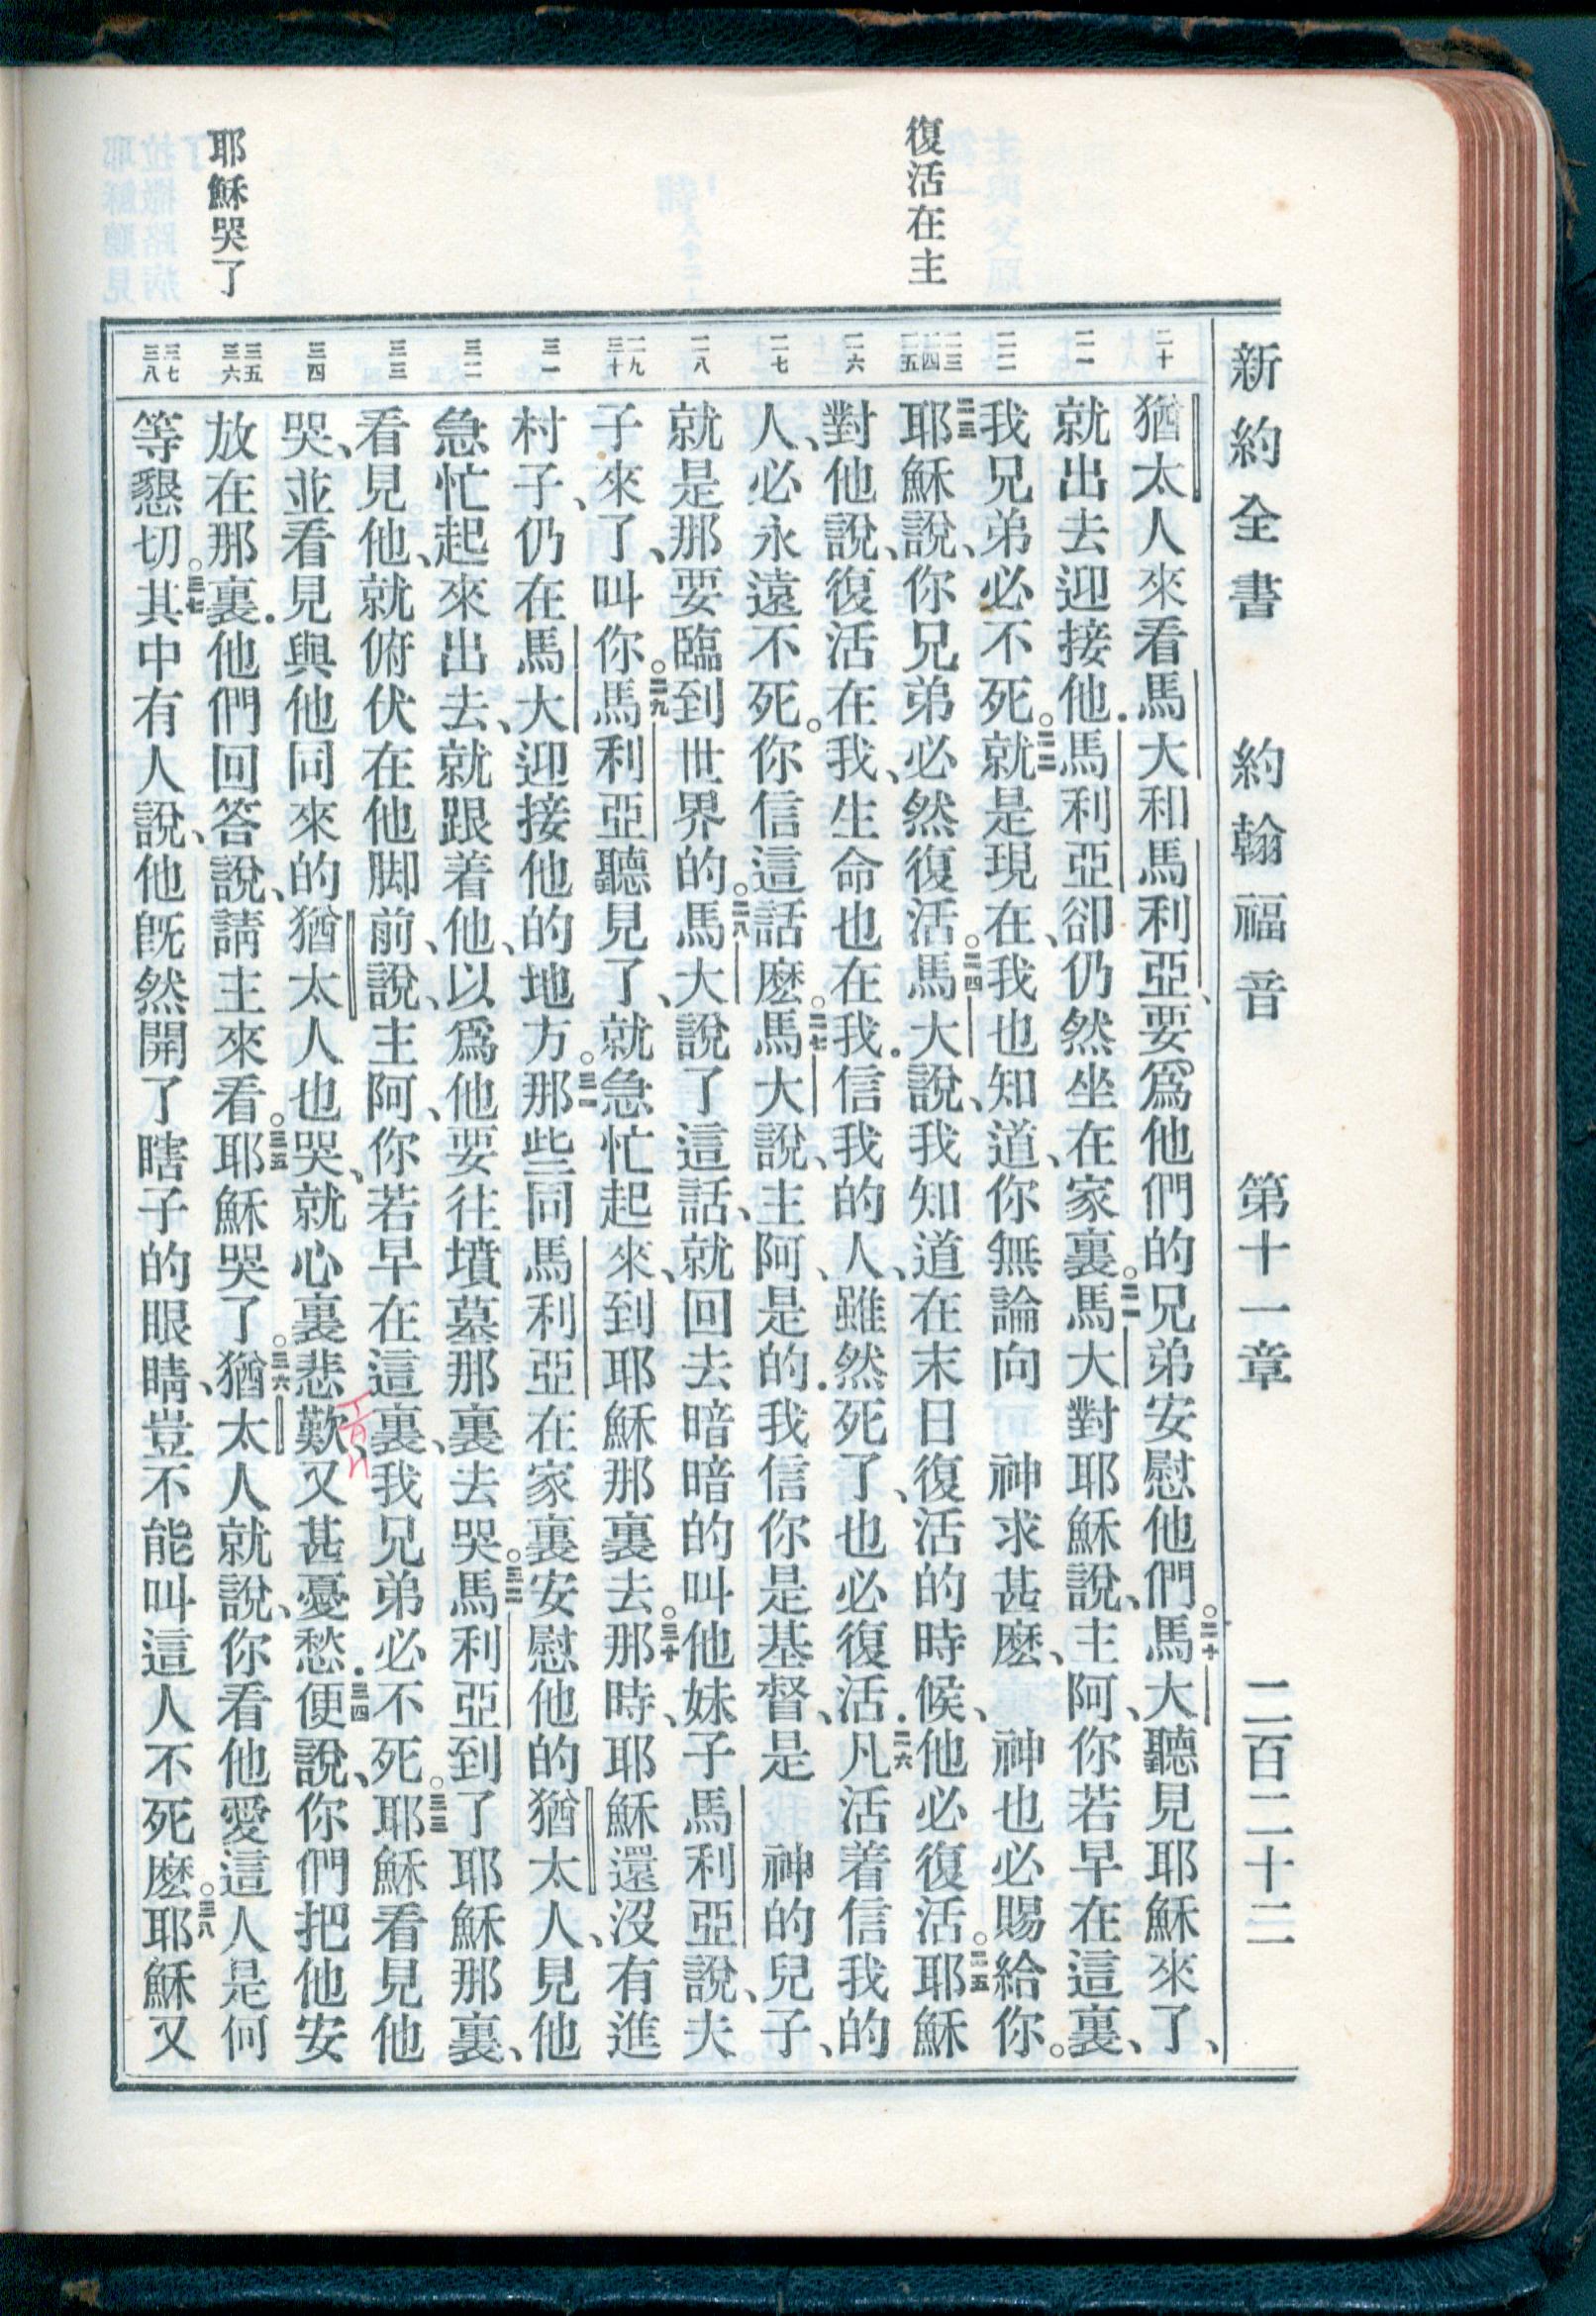 復活在主
耶穌哭了
新約全書 約翰福音 第十一章 二百二十二
二十
二一
二二
二三
二四
二五
二六
二七
二八
二九
三十
三一
三二
三三
三四
三五
三六
三七
三八
猶太人來看馬大和馬利亞、要爲他們的兄弟安慰他們。二十馬大聽見耶穌來了、
就出去迎接他．馬利亞卻仍然坐在家裏。二一馬大對耶穌說、主阿、你若早在這裏、
我兄弟必不死。二二就是現在、我也知道、你無論向 神求甚麽、 神也必賜給你。
二三耶穌說、你兄弟必然復活。二四馬大說、我知道在末日復活的時候、他必復活。二五耶穌
對他說、復活在我、生命也在我．信我的人、雖然死了、也必復活．二六凡活着信我的
人、必永遠不死。你信這話麽。二七馬大說、主阿、是的．我信你是基督、是 神的兒子、
就是那要臨到世界的。二八馬大說了這話、就回去暗暗的叫他妹子馬利亞說、夫
子來了、叫你。二九馬利亞聽見了、就急忙起來、到耶穌那裏去。三十那時、耶穌還沒有進
村子、仍在馬大迎接他的地方。三一那些同馬利亞在家裏安慰他的猶太人、見他
急忙起來出去、就跟着他、以爲他要往墳墓那裏去哭。三二馬利亞到了耶穌那裏、
看見他、就俯伏在他脚前、說、主阿、你若早在這裏、我兄弟必不死。三三耶穌看見他
哭、並看見與他同來的猶太人也哭、就心裏悲歎、又甚憂愁．三四便說、你們把他安
放在那裏．他們回答說、請主來看。三五耶穌哭了。三六猶太人就說、你看他愛這人是何
等懇切。三七其中有人說、他旣然開了瞎子的眼睛、豈不能叫這人不死麽。三八耶穌又